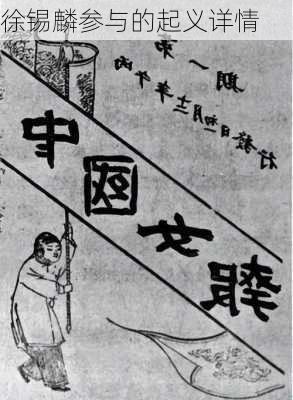 徐锡麟参与的起义详情
第一期
丙午年十二月初一日發行
中國女報